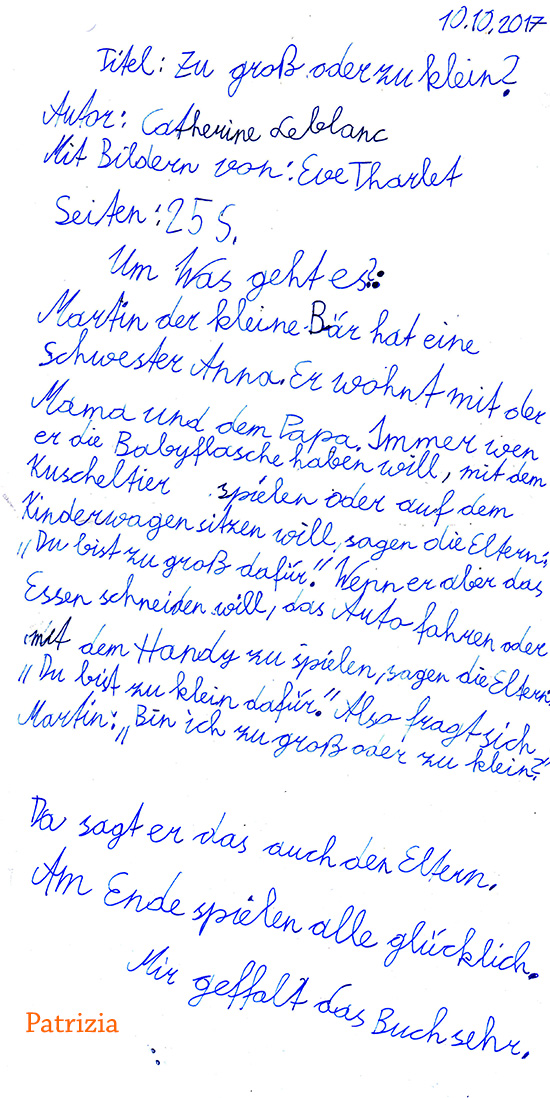 10.10.2017
Titel: Zu groß oder zu klein?
Autor: Catherine Leblanc
Mit Bildern von: Eve Tharlet
Seiten: 25 S.
Um Was geht es?:
Martin der kleine Bär hat eine
Schwester Anna. Er wohnt mit der
Mama und dem Papa. Immer wen
er die Babyflasche haben will, mit dem
Kuscheltier spielen oder auf dem
Kinderwagen sitzen will, sagen die Eltern:
„Du bist zu groß dafür.“ Wenn er aber das
Essen schneiden will, das Auto fahren oder
mit dem Handy zu spielen, sagen die Eltern:
„Du bist zu klein dafür.“ Also fragt sich
Martin: „Bin ich zu groß oder zu klein?“
Da sagt er das auch den Eltern.
Am Ende spielen alle glücklich.
Mir geffalt das Buch sehr.
Patrizia